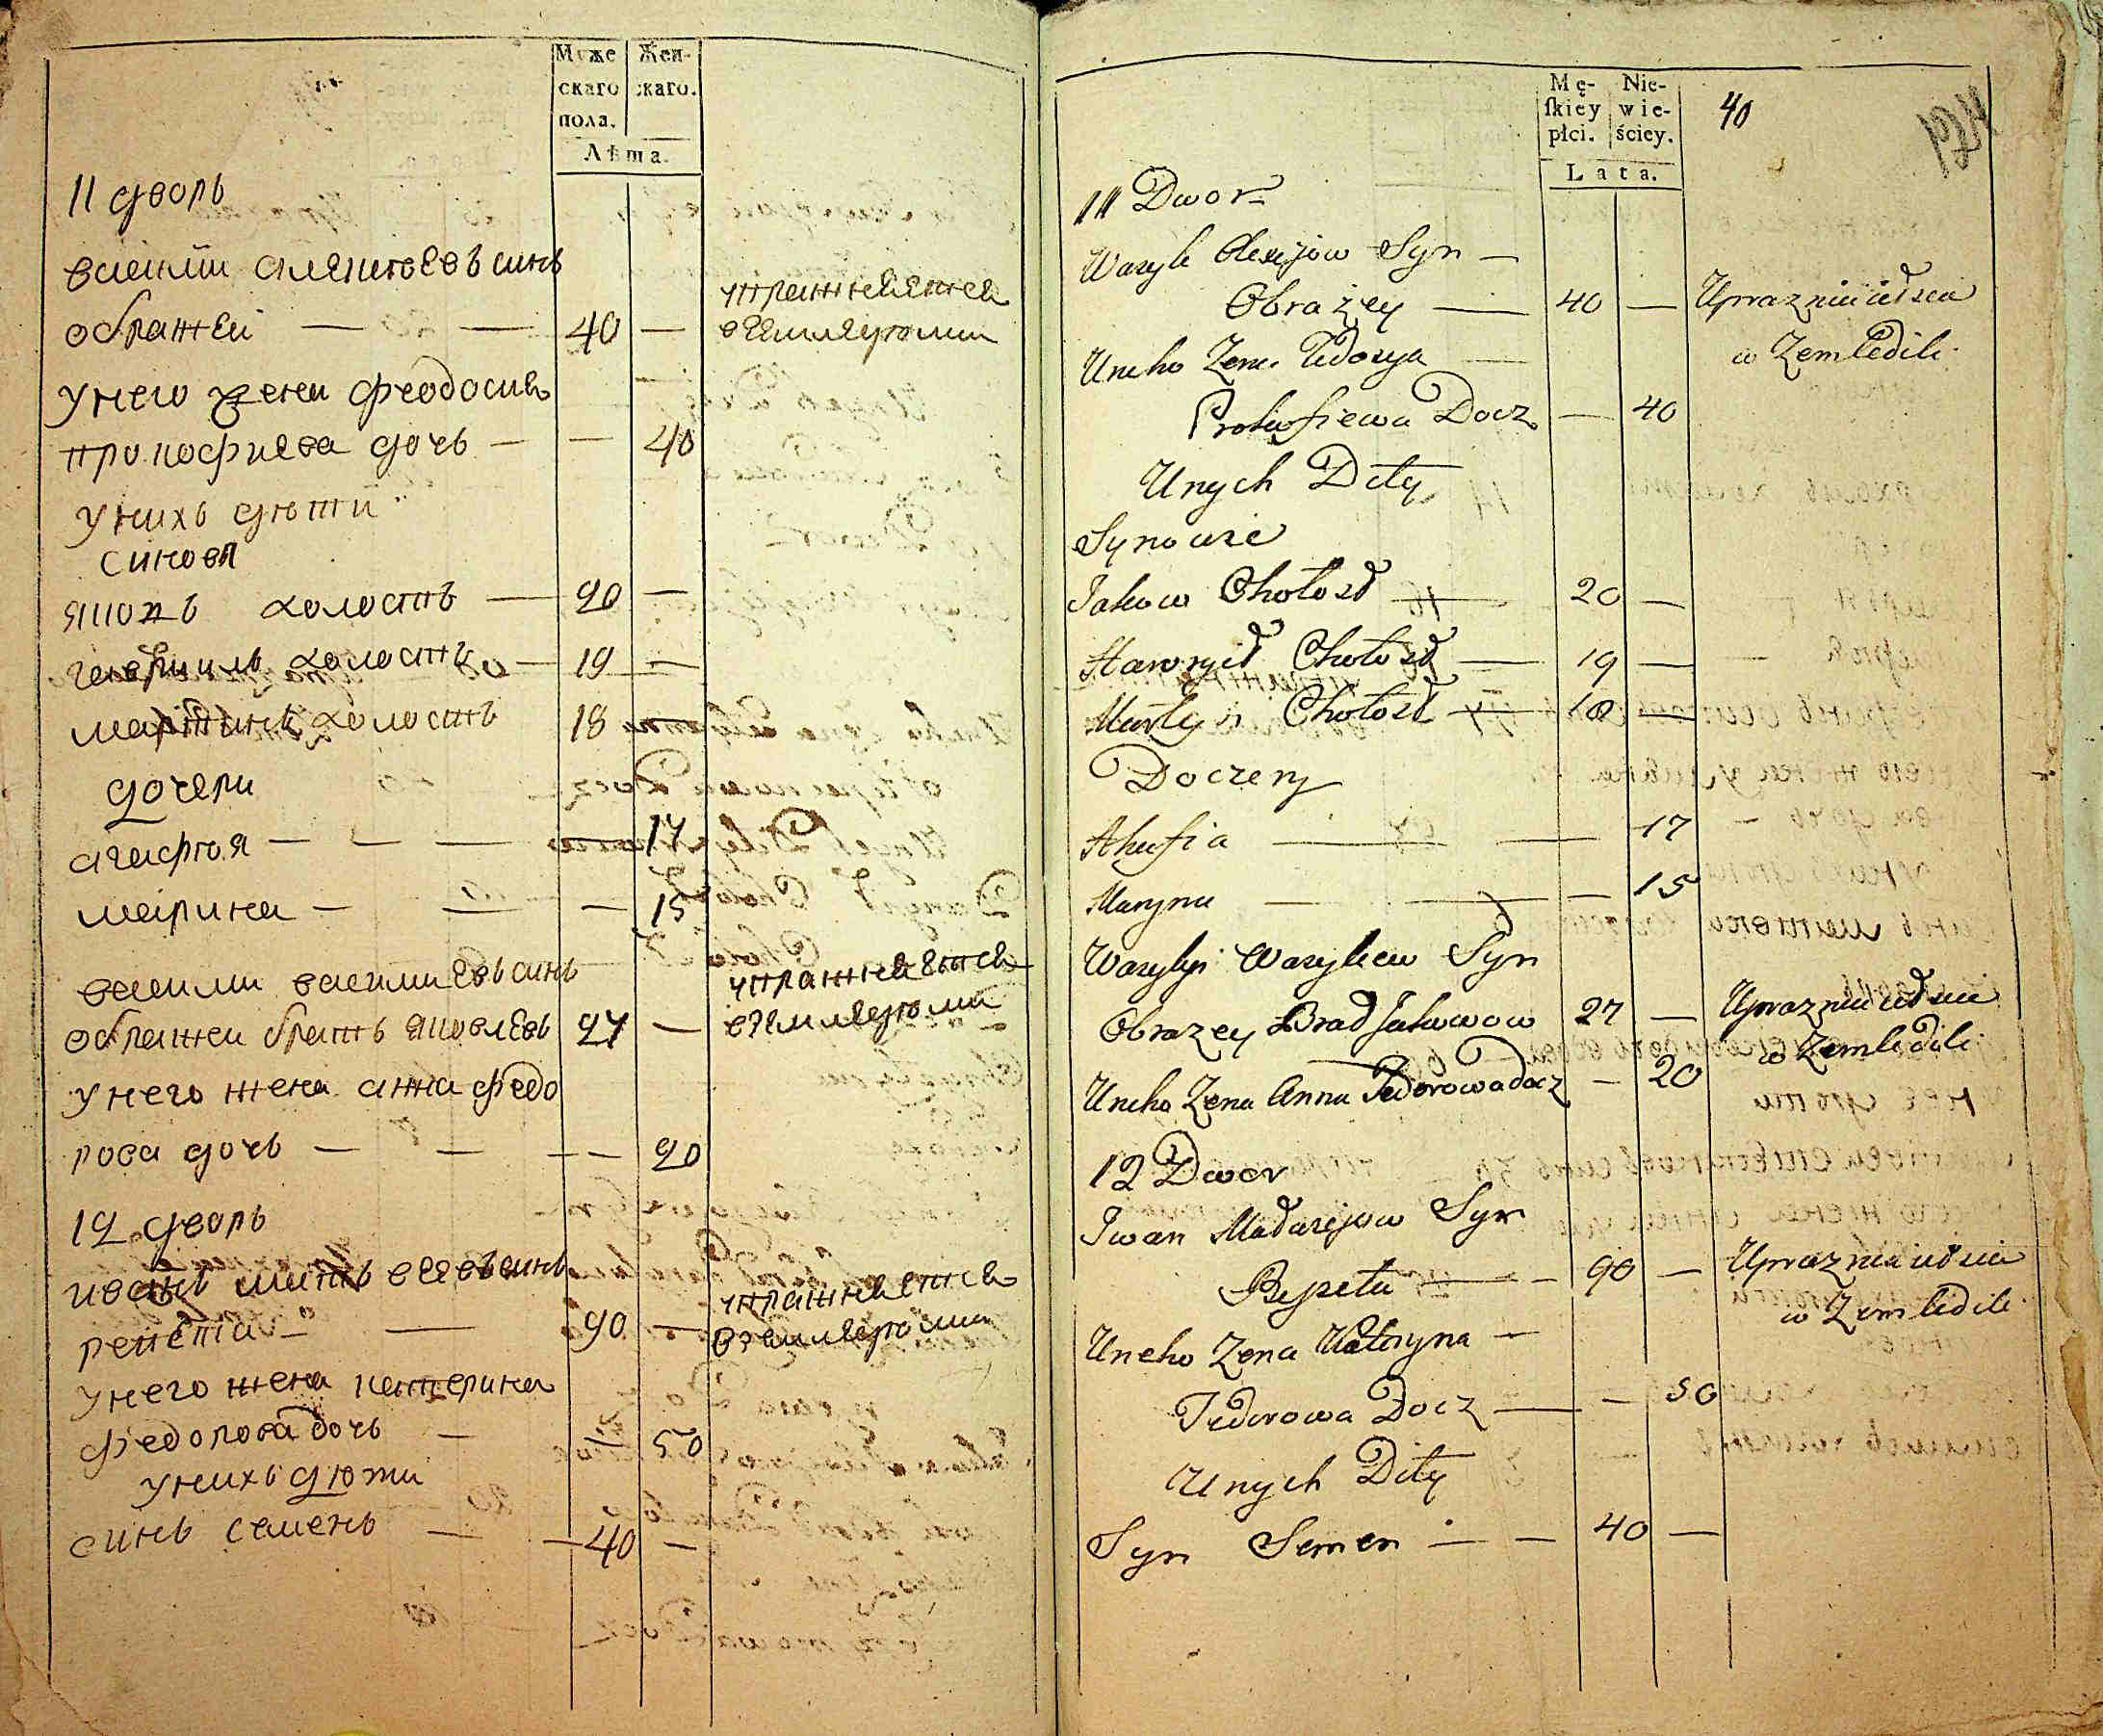 Муже
скаго
пола.
Жен-
скаго.
Лѣта.
11 дворъ
василий алексѣевъ синъ
ображей — — 40 —
упражняится
вземледѣлии
унего жена феодосия
прокофиева дочь — — 40
унихъ дѣти
синовя
яковъ холостъ — 20 —
гавриилъ холостъ — 19 —
мартинъ холостъ 18 —
дочери
агафия — — — 17
марина — — — 15
василий василиевъ синъ
ображей братъ яковлевъ 27 —
упражняится
вземледѣлии
унего жена анна федо
рова дочь — — — 20
12 дворъ
иванъ матвѣевъ синъ
репета — — 90 —
упражняится
вземледѣлии
унего жена катерина
федорова дочь — — 50
унихъ дѣти
синъ семенъ — — 40 —
Mę-
ſkiey
płci.
Nie-
wie-
ściey.
Lata.
40
11 Dwor
Wasyle Olexijow Syn —
Obrażey — 40 —
Uprazniaietsia
w Zemledili
Uneho Zena Fedosya —
Prokofiewa Docz — 40
Unych Dity
Synowie
Jakow Chołost — 20 —
Hawryił Chołost — 19 —
Martyn Chołost — 18 —
Doczery
Ahafia — — 17
Maryna — — — 15
Wasylyi Wasyliew Syn
Obrazey Brad Jakowow 27 —
Uprazniaietsia
w Zemledili
Uneho Zena Anna Fedorowa docz — 20
12 Dwor
Iwan Matwiejow Syn
Repeta — — 90 —
Uprazniaietsia
w Zemledili
Uneho Zena Katryna —
Fedorowa Docz — — 50
Unych Dity
Syn Semen — — 40 —